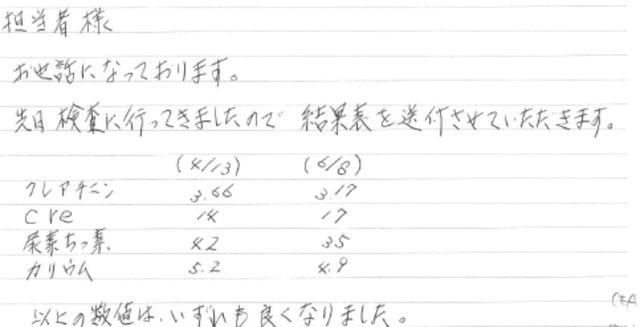 担当者様
お世話になっております。
先日 検査に行ってきましたので 結果表を送付させていただきます。
(4/13) (6/8)
クレアチニン 3.66 3.17
cre 14 17
尿素ちっ素 42 35
カリウム 5.2 4.9
以上の数値は、いずれも良くなりました。